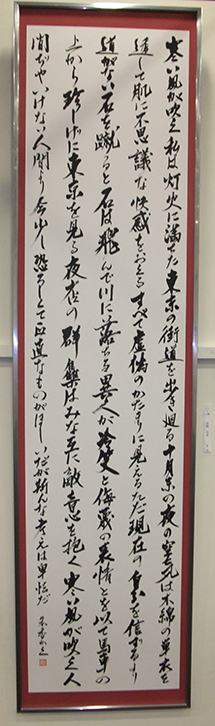 寒い風が吹く私は灯火に満てた東京の街道を歩き廻る十月末の夜の空気は木綿の単衣を
透して肌に不思議な快感をおくるすべて虚偽のかたまりに見えるただ現在の自分を信ずるより
道がない石を蹴ると石は飛んで川に落ちる異人が冷笑と侮蔑の表情とを以て馬車の
上から珍しげに東京を見る夜店の群集はみな互に敵意を抱く寒い風が吹く人
間ぢやいけない人間より今少し恐ろしくて正直なものがほしいだが斯んな考へは卑怯だ